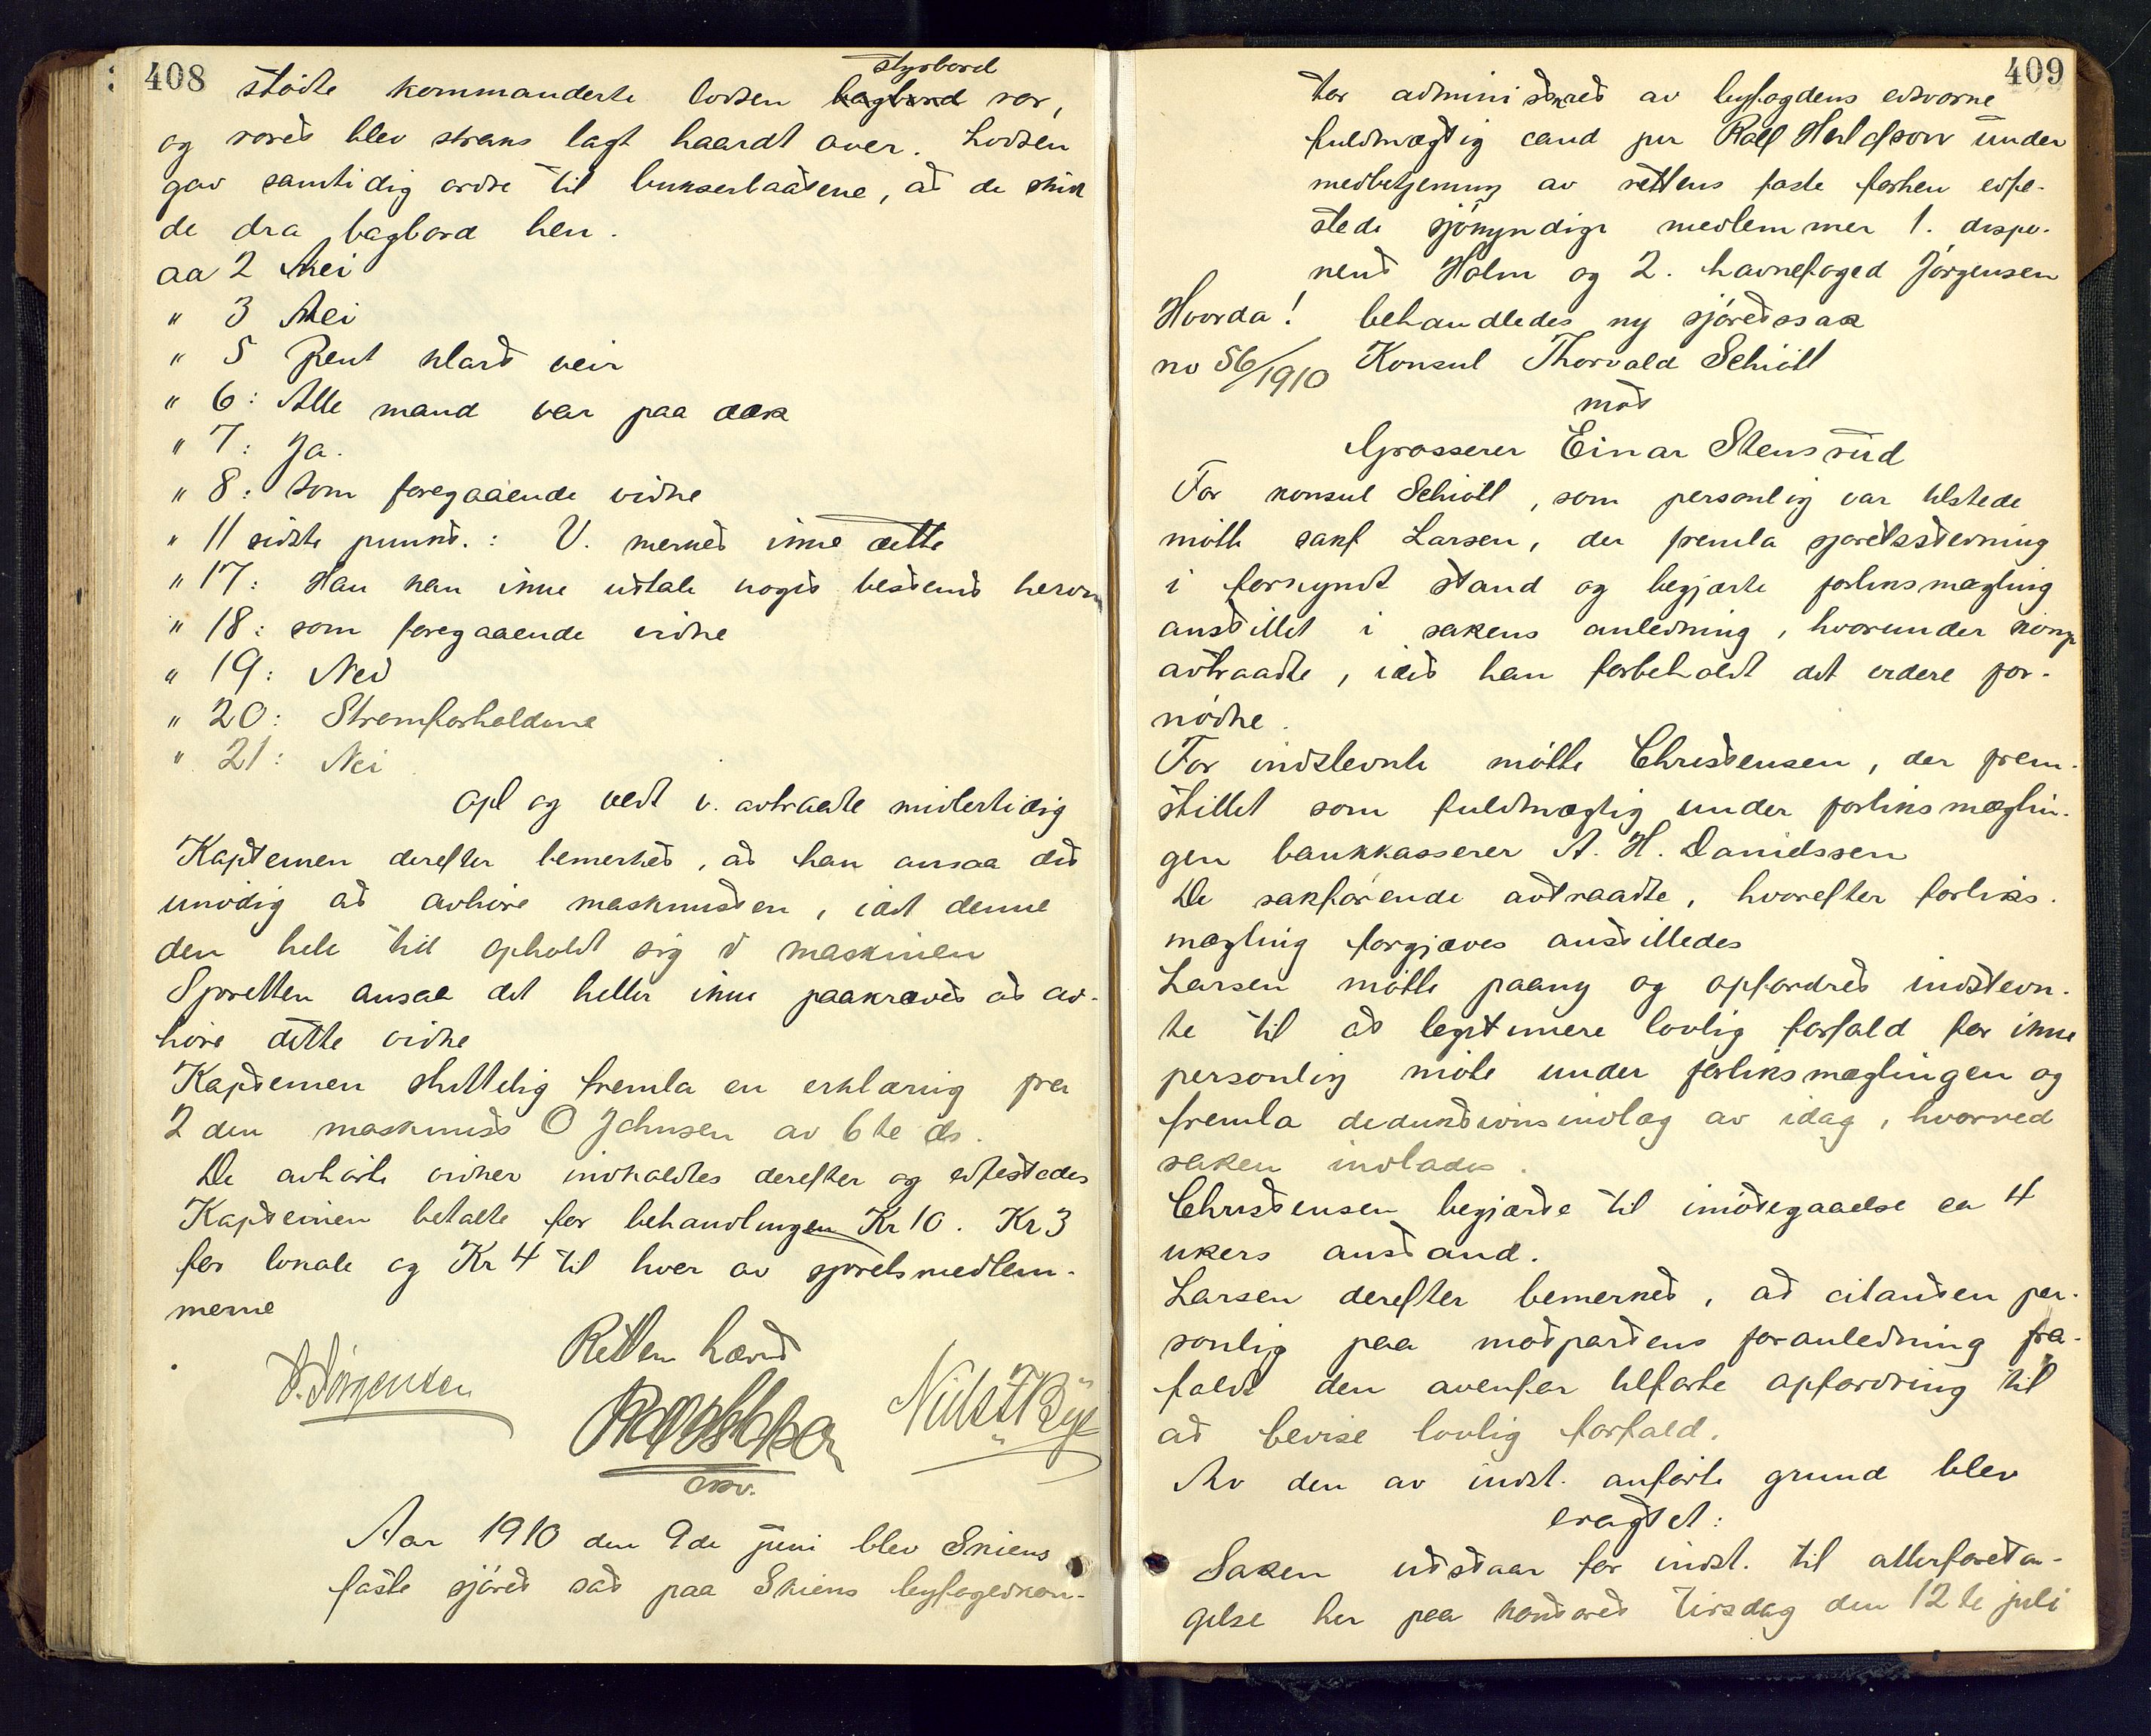 408
styrbord
stødte kommanderte lodsen bagbord ror,
og roret blev straks lagt haardt over. Lodsen
gav samtidig ordre til bukserbaatene, at de skul
de dra bagbord hen.
aa 2 Nei
" 3 Nei
" 5 Rent klart veir
" 6: Alle mand var paa dæk
" 7: Ja.
" 8: Som foregaaende vidne
" 11 sidste punkt.: V. merket ikke dette
" 17: Han kan ikke uttale noget bestemt herom
" 18: som foregaaende vidne
" 19: Nei
" 20: Strømforholdene
" 21: Nei
Opl og vedt v. avtraadte midlertidig
Kapteinen derefter bemerket, at han ansaa det
unødig at avhøre maskinisten, idet denne
den hele tid opholdt sig i maskinen
Sjøretten ansaa det heller ikke paakrævet at av-
høre dette vidne
Kapteinen sluttelig fremla en erklæring fra
2 den maskinist O Johnsen av 6te ds.
De avhørte vidner indkaldtes derefter og edfestedes
Kapteinen betalte for behandlingen Kr 10. Kr 3
for lokale og Kr 4 til hver av sjøretsmedlem-
merne
Retten hævet
Jørgensen
Niels Bye
Aar 1910 den 9de juni blev Skiens
faste sjøret sat paa Skiens byfogedkon-
409
tor administreret av byfogdens edsvorne
fuldmægtig cand jur Rolf under
medbetjening av rettens faste forhen edfe-
stede sjøkyndige medlemmer 1. dispo-
nent Holm og 2. havnefoged Jørgensen
Hvorda! behandledes ny sjøretssak
no 56/1910 Konsul Thorvald Schiøtt
mot
Grosserer Einar Stensrud
For konsul Schiøtt, som personlig var tilstede
møtte sakf Larsen, der fremla sjøretsstevning
i forkyndt stand og begjærte forliksmægling
anstillet i sakens anledning, hvorunder komp
avtraadte, idet han forbeholdt det videre for-
nødne.
For indstevnte møtte Christensen, der frem-
stillet som fuldmægtig under forliksmæglin-
gen bankkasserer A. H. Danielssen
De sakførende avtraadte, hvorefter forliks-
mægling forgjæves anstilledes
Larsen møtte paany og opfordret indstevn-
te til at legitimere lovlig forfald for ikke
personlig møte under forliksmæglingen og
fremla deduktionsindlæg av idag, hvorved
saken indlades.
Christensen begjærte til imøtegaaelse en 4
ukers anstand.
Larsen derefter bemerket, at citanten per-
sonlig paa motpartens foranledning fra-
faldt den ovenfor tilførte opfordring til
at bevise lovlig forfald.
Av den av indst. anførte grund blev
eragtet:
Saken utstaar for indst. til atterforeta-
gelse her paa kontoret Tirsdag den 12te juli